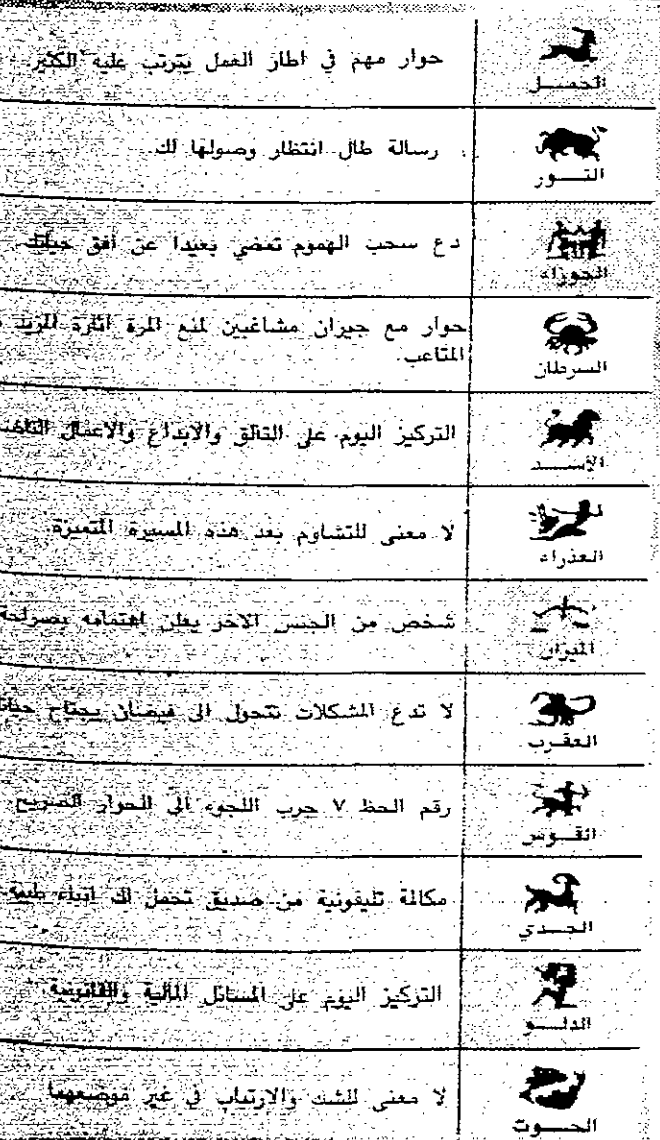 الحمــل
حوار مهم في اطار العمل يترتب عليه الكثير
الثــور
رسالة طال انتظار وصولها لك.
الجوزاء
دع سحب الهموم تمضي بعيدا عن أفق حياتك
السرطان
حوار مع جيران مشاغبين لمنع المرة اثارة المزيد
المتاعب.
الأســد
التركيز اليوم على التالق والابداع والاعمال
العذراء
لا معنى للتشاوم بعد هذه المسيرة المتميزة
الميزان
شخص من الجنس الاخر يعلن اهتمامه بصراحة
العقرب
لا تدع المشكلات تتحول الى فيضان يجتاح
القــوس
رقم الحظ ٧ جرب اللجوء الى الحوار الصريح
الجــدي
مكالمة تليفونية من صديق تحمل لك انباء طيبة
الدلــو
التركيز اليوم على المسائل المالية والقانونية
الحــوت
لا معنى للشك والارتياب في غير موضعهما